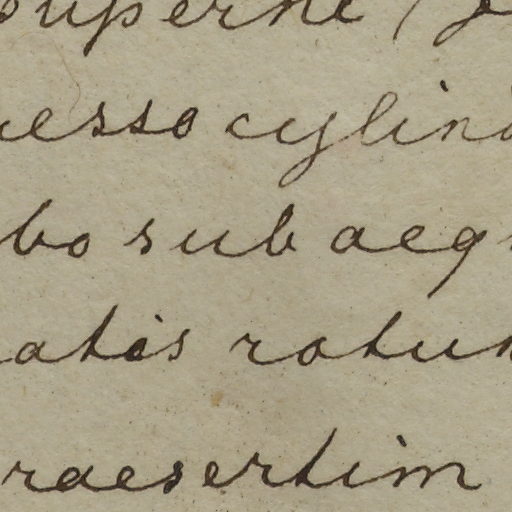 superne
esso cylind
bo subaeq
atis rotun
raesertim